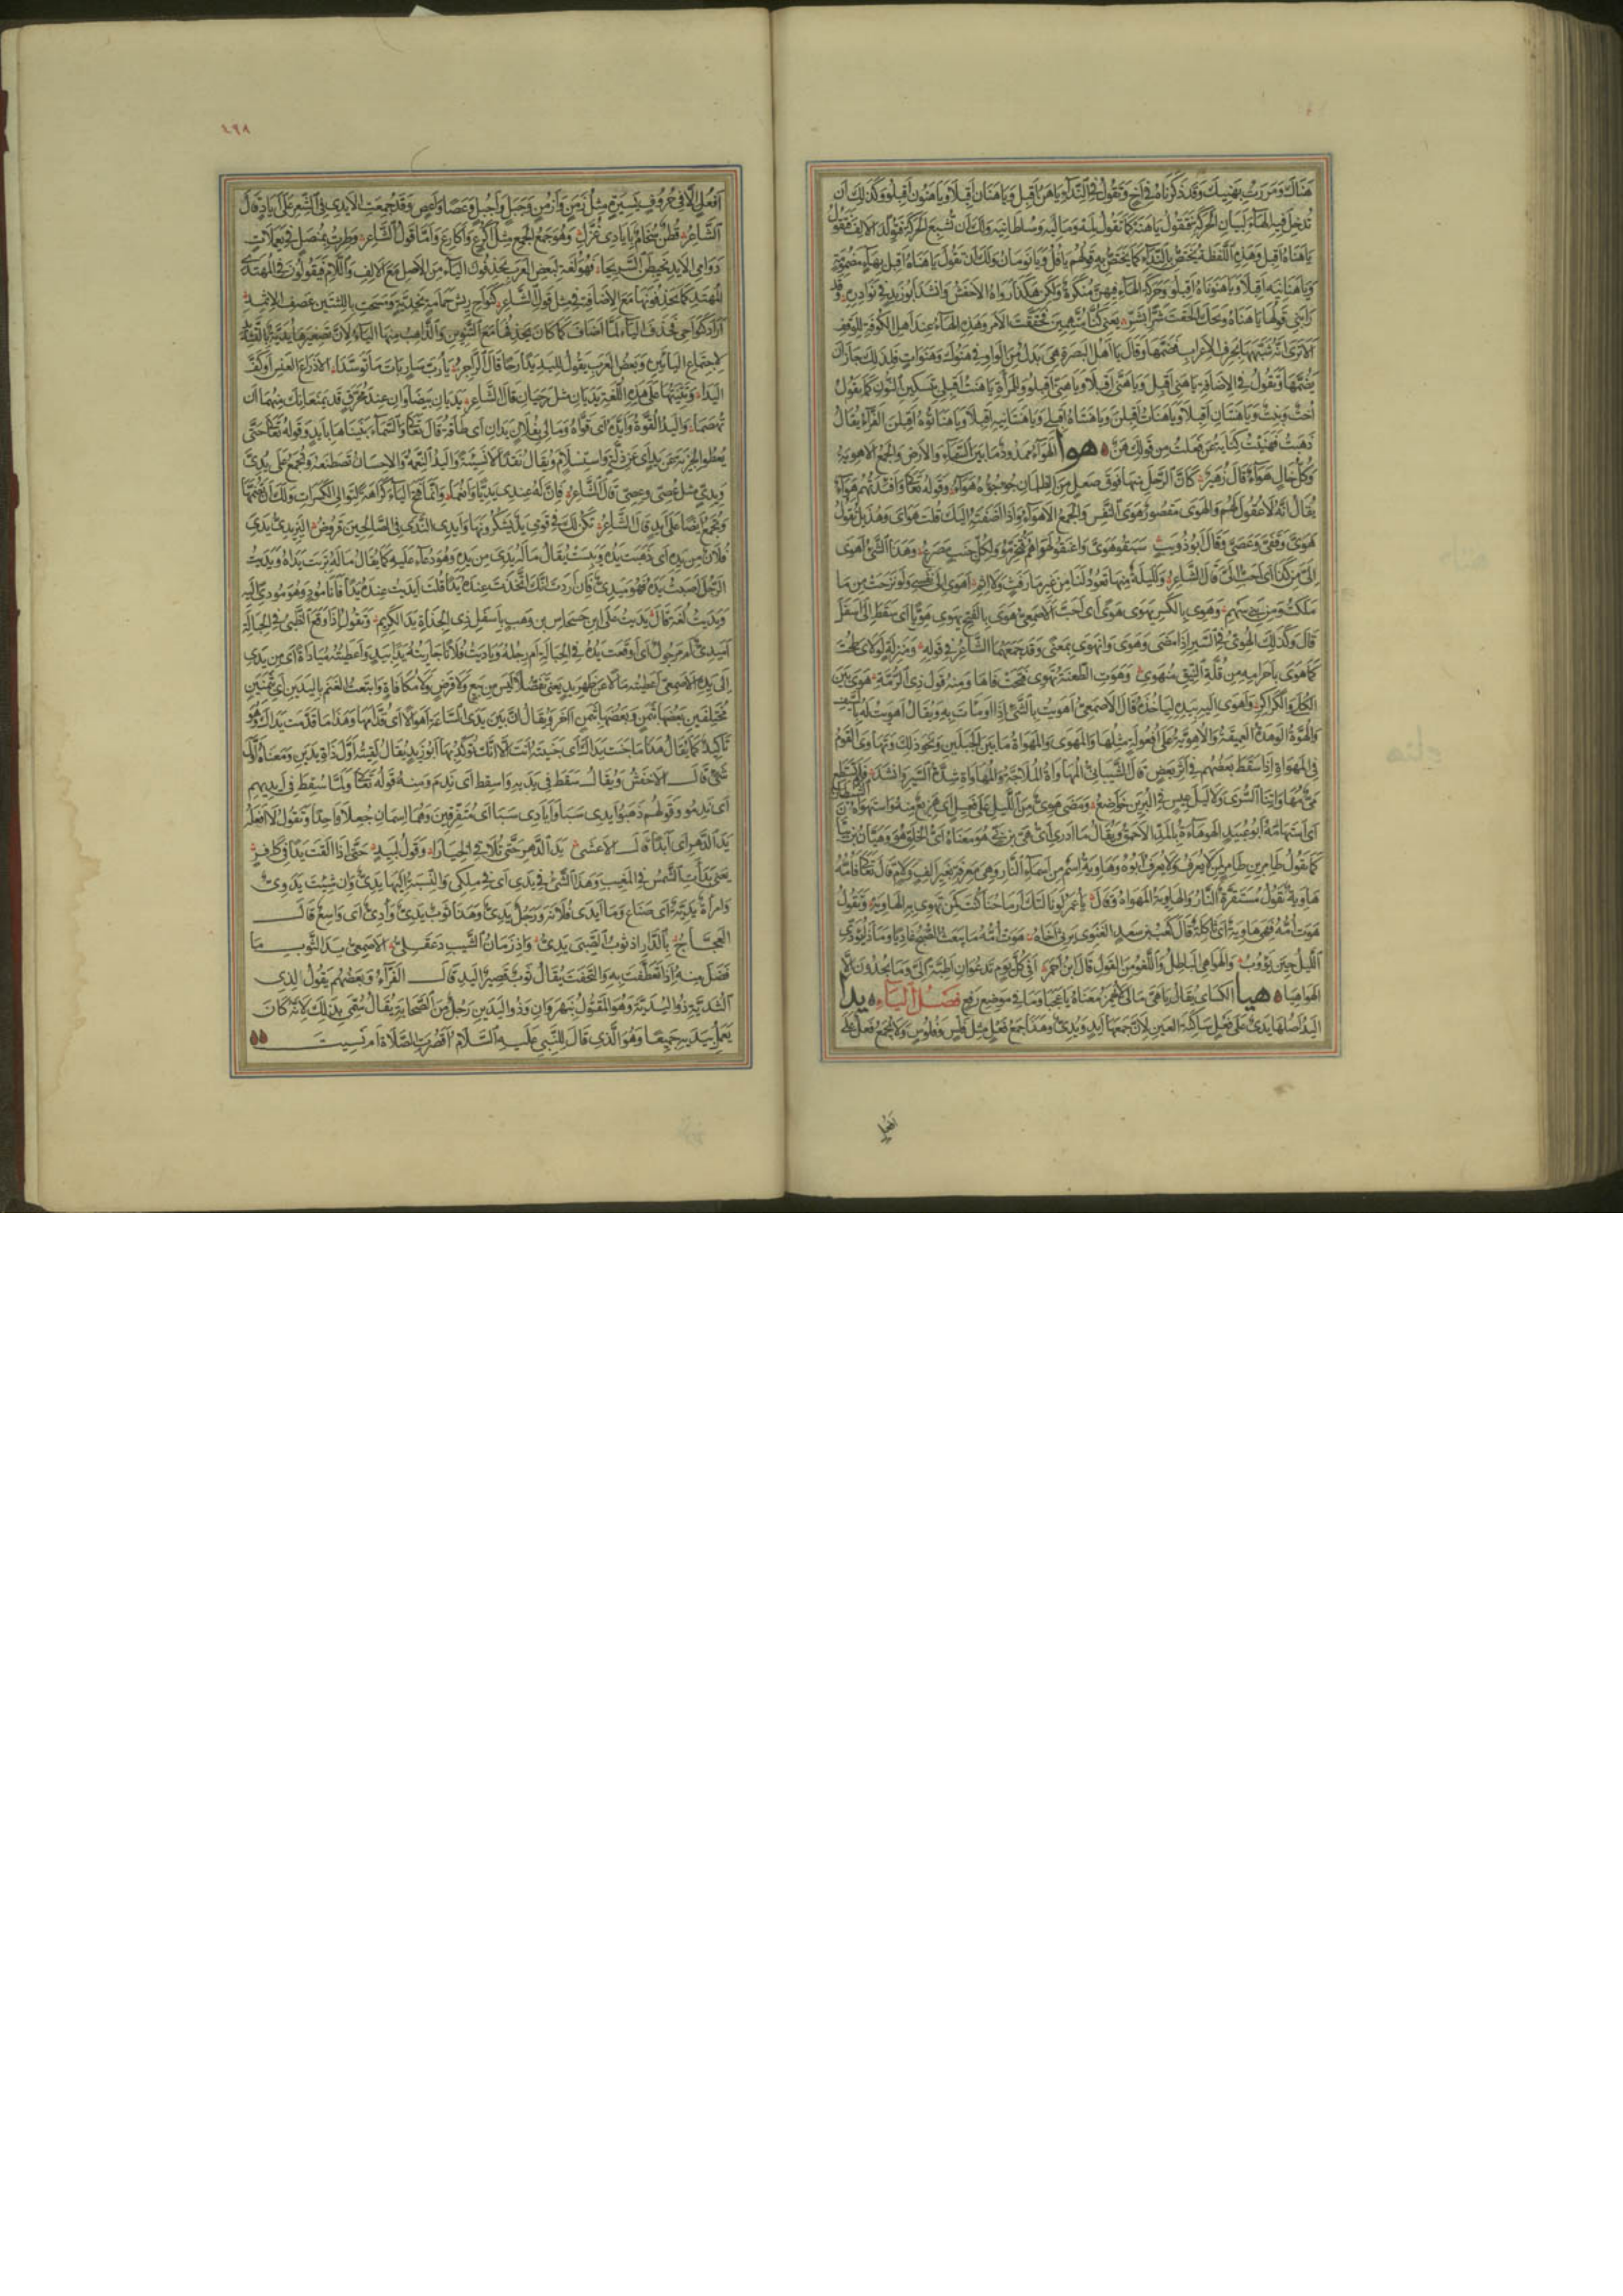 هَنَاكَ وَمَرَرْتُ بِهَنِيكَ وَقَدْ ذَكَرْنَاهُ فِي أَخٍ وَتَقُولُ فِي النِّدَاءِ يَا هَنُ أَقْبِلْ وَيَا هَنَانِ أَقْبِلَا وَيَا هَنُونَ أَقْبِلُوا وَلَكَ أَنْ
تُدْخِلَ فِيهِ الْهَاءَ لِبَيَانِ الْحَرَكَةِ فَتَقُولُ يَا هَنَهْ كَمَا تَقُولُ لِمَهْ وَمَالِيَهْ وَسُلْطَانِيَهْ وَلَكَ أَنْ تُشْبِعَ الْحَرَكَةَ فَتُوَلِّدَ الْأَلِفَ فَتَقُولُ
يَا هَنَاهْ أَقْبِلْ وَهَذِهِ اللَّفْظَةُ تَخْتَصُّ بِالنِّدَاءِ كَمَا يَخْتَصُّ بِهِ قَوْلُهُمْ يَا فُلُ وَيَا نَوْمَانُ وَلَكَ أَنْ تَقُولَ يَا هَنَاهُ أَقْبِلْ بِهَاءٍ مَضْمُومَةٍ
وَيَا هَنَانِيهِ أَقْبِلَا وَيَا هَنُونَاهُ أَقْبِلُوا وَحَرَكَةُ الْهَاءِ فِيهِنَّ مُنْكَرَةٌ وَلَكِنْ هَكَذَا رَوَاهُ الْأَخْفَشُ وَأَنْشَدَ أَبُو زَيْدٍ فِي نَوَادِرِهِ وَقَدْ
رَابَنِي قَوْلُهَا يَا هَنَاهُ وَيْحَكَ أَلْحَقْتَ شَرًّا بِشَرّ يَعْنِي كُنَّا مُتَّهَمِينَ فَحَقَّقْتَ الْأَمْرَ وَهَذِهِ الْهَاءُ عِنْدَ أَهْلِ الْكُوفَةِ لِلْوَقْفِ
أَلَا تَرَى أَنَّهُ شَبَّهَهَا بِحَرْفِ الْإِعْرَابِ فَضَمَّهَا وَقَالَ يَا أَهْلُ الْبَصْرَةِ هِيَ بَدَلٌ مِنَ الْوَاوِ فِي هَنُوكَ وَهَنَوَاتٍ فَلِذَلِكَ جَازَ أَنْ
يَضُمَّهَا وَتَقُولُ فِي الْإِضَافَةِ يَا هَنِي أَقْبِلْ وَيَا هَنَيَّ أَقْبِلَا وَيَا هَنِيَّ أَقْبِلُوا وَلِلْمَرْأَةِ يَا هَنْتُ أَقْبِلِي بِتَسْكِينِ النُّونِ كَمَا يَقُولُ
أُخْتٌ وَبِنْتٌ وَيَا هَنْتَانِ أَقْبِلَا وَيَا هَنَاتُ أَقْبِلْنَ وَيَا هَنْتَاهُ أَقْبِلِي وَيَا هَنْتَانِيهِ أَقْبِلَا وَيَا هَنَاتُوهُ أَقْبِلْنَ الْفَرَّاءُ يُقَالُ
ذَهَبْتُ فَهَنَيْتُ كِنَايَةٌ عَنْ فَعَلْتُ مِنْ قَوْلِكَ هَنٌ هوا الْهَوَاءُ مَمْدُودٌ مَا بَيْنَ السَّمَاءِ وَالْأَرْضِ وَالْجَمْعُ الْأَهْوِيَةُ
وَكُلُّ خَالٍ هَوَاءٌ قَالَ زُهَيْرٌ كَأَنَّ الرَّحْلَ مِنْهَا فَوْقَ صَعْلٍ مِنَ الظِّلْمَانِ جُؤْجُؤُهُ هَوَاءُ وَقَوْلُهُ تَعَالَى وَأَفْئِدَتُهُمْ هَوَاءٌ
يُقَالُ إِنَّهُ لَا عُقُولَ لَهُمْ وَالْهَوَى مَقْصُورٌ هَوَى النَّفْسِ وَالْجَمْعُ الْأَهْوَاءُ وَإِذَا أَضَفْتَهُ إِلَيْكَ قُلْتَ هَوَايَ وَهُذَيْلٌ تَقُولُ
هَوَيَّ وَقَفَيَّ وَعَصَيَّ وَقَالَ أَبُو ذُؤَيْبٍ سَبَقُوا هَوَيَّ وَأَعْنَقُوا لِهَوَاهُمُ فَتُخُرِّمُوا وَلِكُلِّ جَنْبٍ مَصْرَعُ وَهَذَا الشَّيْءُ أَهْوَى
إِلَيَّ مِنْ كَذَا أَيْ أَحَبُّ إِلَيَّ قَالَ الشَّاعِرُ وَلَلَيْلَةٌ مِنْهَا تَعُودُ لَنَا مِنْ غَيْرِ مَا رَفَثٍ وَلَا إِثْمِ أَهْوَى إِلَى نَفْسِي وَلَوْ نَزَحَتْ مِمَّا
مَلَكْتُ وَمِنْ بَنِي سَهْمِ وَهَوِيَ بِالْكَسْرِ يَهْوَى هَوًى أَيْ أَحَبَّ الْأَصْمَعِيُّ هَوَى بِالْفَتْحِ يَهْوِي هُوِيًّا أَيْ سَقَطَ إِلَى أَسْفَلَ
قَالَ وَكَذَلِكَ الْهُوِيُّ فِي السَّيْرِ إِذَا مَضَى وَهَوَى وَانْهَوَى بِمَعْنًى وَقَدْ جَمَعَهُمَا الشَّاعِرُ فِي قَوْلِهِ وَمَنْزِلَةٍ لَوْلَايَ طِحْتَ
كَمَا هَوَى بِأَجْرَامِهِ مِنْ قُلَّةِ النِّيقِ مُنْهَوِي وَهَوَتِ الطَّعْنَةُ تَهْوِي فَتَحَتْ فَاهَا وَمِنْهُ قَوْلُ ذِي الرُّمَّةِ هَوَى بَيْنَ
الْكُلَى وَالْكَرَاكِرِ وَأَهْوَى إِلَيْهِ بِيَدِهِ لِيَأْخُذَهُ قَالَ الْأَصْمَعِيُّ أَهْوَيْتُ بِالشَّيْءِ إِذَا أَوْمَأْتَ بِهِ وَيُقَالُ أَهْوَيْتُ لَهُ بِالسَّيْفِ
وَالْهُوَّةُ الْوَهْدَةُ الْعَمِيقَةُ وَالْأُهْوِيَّةُ عَلَى أُفْعُولَةٍ مِثْلُهَا وَالْمَهْوَى وَالْمَهْوَاةُ مَا بَيْنَ الْجَبَلَيْنِ وَنَحْوَ ذَلِكَ وَتَهَاوَى الْقَوْمُ
فِي الْمَهْوَاةِ إِذَا سَقَطَ بَعْضُهُمْ فِي إِثْرِ بَعْضٍ قَالَ الشَّيْبَانِيُّ الْمُهَاوَاةُ الْمُلَاجَّةُ وَالْمُهَاوَاةُ شِدَّةُ السَّيْرِ وَأَنْشَدَ فَلَمْ تَسْتَطِعْ
مَيٌّ مُهَاوَاتَنَا السُّرَى وَلَا لَيْلَ عِيسٍ فِي الْبُرِينَ خَوَاضِعُ وَمَضَى هَوِيٌّ مِنَ اللَّيْلِ عَلَى فَعِيلٍ أَيْ هَزِيعٌ مِنْهُ وَاسْتَهْوَاهُ الشَّيْطَانُ
أَيِ اسْتَهَامَهُ أَبُو عُبَيْدٍ الْهَوْهَاءَةُ بِالْمَدِّ الْأَحْمَقُ وَيُقَالُ مَا أَدْرِي أَيُّ هَيِّ بْنِ بَيٍّ هُوَ مَعْنَاهُ أَيُّ الْخَلْقِ هُوَ وَهَيَّانُ بْنُ بَيَّانَ
كَمَا يَقُولُ طَامِرُ بْنُ طَامِرٍ لِمَنْ لَا يُعْرَفُ وَلَا يُعْرَفُ أَبُوهُ وَهَاوِيَةُ اسْمٌ مِنْ أَسْمَاءِ النَّارِ وَهِيَ مَعْرِفَةٌ بِغَيْرِ أَلِفٍ وَلَامٍ قَالَ تَعَالَى فَأُمُّهُ
هَاوِيَةٌ تَقُولُ مُسْتَقَرُّهُ النَّارُ وَالْهَاوِيَةُ الْمَهْوَاةُ وَقَالَ يَا عَمْرُو لَوْ نَالَتْكَ أَرْمَاحُنَا كُنْتَ كَمَنْ تَهْوِي بِهِ الْهَاوِيَهْ وَتَقُولُ
هَوَتْ أُمُّهُ فَهِيَ هَاوِيَةٌ أَيْ ثَاكِلَةٌ قَالَ كَعْبُ بْنُ سَعْدٍ الْغَنَوِيُّ يَرْثِي أَخَاهُ هَوَتْ أُمُّهُ مَا يَبْعَثُ الصُّبْحُ غَادِيًا وَمَاذَا يُؤَدِّي
اللَّيْلُ حِينَ يَؤُوبُ وَالْهَوَاهِي الْبَاطِلُ وَاللَّغْوُ مِنَ الْقَوْلِ قَالَ ابْنُ أَحْمَرَ أَفِي كُلِّ يَوْمٍ تَدْعُوَانِ أَطِبَّةً إِلَيَّ وَمَا يُجْدُونَ إِلَّا
الْهَوَاهِيَا هيا الْكِسَائِيُّ يُقَالُ يَا هَيَّ مَالِي لَا يُهْمَزُ مَعْنَاهُ يَا عَجَبًا وَمَا فِي مَوْضِعِ رَفْعٍ فَصْلُ الْيَاءِ يدا
الْيَدُ أَصْلُهَا يَدْيٌ عَلَى فَعْلٍ سَاكِنَةُ الْعَيْنِ لِأَنَّ جَمْعَهَا أَيْدٍ وَيُدِيٌّ وَهَذَا جَمْعُ فَعْلٍ مِثْلُ فَلْسٍ وَفُلُوسٍ وَلَا يُجْمَعُ فَعَلٌ عَلَى
أَفْعُلٍ
٤٩٨
أَفْعُلٍ إِلَّا فِي حُرُوفٍ يَسِيرَةٍ مِثْلُ زَمَنٍ وَأَزْمُنٍ وَجَبَلٍ وَأَجْبُلٍ وَعَصًا وَأَعْصٍ وَقَدْ جُمِعَتِ الْأَيْدِي فِي الشِّعْرِ عَلَى أَيَادٍ قَالَ
الشَّاعِرُ قُطْنٌ سُخَامٌ بِأَيَادِي غُزَّلِ وَهُوَ جَمْعُ الْجَمْعِ مِثْلُ أَكْرُعٍ وَأَكَارِعَ وَأَمَّا قَوْلُ الشَّاعِرِ وَطِرْتُ بِمُنْصُلِي فِي يَعْمَلَاتٍ
دَوَامِي الْأَيْدِ يَخْبِطْنَ السَّرِيحَا فَهُوَ لُغَةٌ لِبَعْضِ الْعَرَبِ يَحْذِفُونَ الْيَاءَ مِنَ الْأَصْلِ مَعَ الْأَلِفِ وَاللَّامِ فَيَقُولُونَ فِي الْمُهْتَدِي
الْمُهْتَدِ كَمَا يَحْذِفُونَهَا مَعَ الْإِضَافَةِ فِي مِثْلِ قَوْلِ الشَّاعِرِ كَنَوَاحِ رِيشِ حَمَامَةٍ نَجْدِيَّةٍ وَمَسَحْتِ بِاللِّثَتَيْنِ عَصْفَ الْإِثْمِدِ
أَرَادَ كَنَوَاحِي فَحَذَفَ الْيَاءَ لَمَّا أَضَافَ كَمَا كَانَ يَحْذِفُهَا مَعَ التَّنْوِينِ وَالذَّاهِبُ مِنْهَا الْيَاءُ لِأَنَّ تَصْغِيرَهَا يُدَيَّةٌ بِالتَّشْدِيدِ
لِاجْتِمَاعِ الْيَاءَيْنِ وَبَعْضُ الْعَرَبِ يَقُولُ لِلْيَدِ يَدًا كَرَحًا قَالَ الرَّاجِزُ يَا رُبَّ سَارٍ بَاتَ مَا تَوَسَّدَا إِلَّا ذِرَاعَ الْعَنْسِ أَوْ كَفَّ
الْيَدَا وَتَثْنِيَتُهَا عَلَى هَذِهِ اللُّغَةِ يَدَيَانِ مِثْلُ رَحَيَانِ قَالَ الشَّاعِرُ يَدَيَانِ بَيْضَاوَانِ عِنْدَ مُحَرِّقٍ قَدْ يَمْنَعَانِكَ مِنْهُمَا أَنْ
تُهْضَمَا وَالْيَدُ الْقُوَّةُ وَأَيَّدَهُ أَيْ قَوَّاهُ وَمَا لِي بِفُلَانٍ يَدَانِ أَيْ طَاقَةٌ قَالَ تَعَالَى وَالسَّمَاءَ بَنَيْنَاهَا بِأَيْدٍ وَقَوْلُهُ تَعَالَى حَتَّى
يُعْطُوا الْجِزْيَةَ عَنْ يَدٍ أَيْ عَنْ ذِلَّةٍ وَاسْتِسْلَامٍ وَيُقَالُ نَقْدًا لَا نَسِيئَةً وَالْيَدُ النِّعْمَةُ وَالْإِحْسَانُ تَصْطَنِعُهُ وَتُجْمَعُ عَلَى يُدِيٍّ
وَيِدِيٍّ مِثْلُ عُصِيٍّ وَعِصِيٍّ قَالَ الشَّاعِرُ فَإِنَّ لَهُ عِنْدِي يَدِيًّا وَأَنْعُمَا وَإِنَّمَا فَتَحَ الْيَاءَ كَرَاهَةً لِتَوَالِي الْكَسَرَاتِ وَلَكَ أَنْ تَضُمَّهَا
وَيُجْمَعُ أَيْضًا عَلَى أَيْدٍ قَالَ الشَّاعِرُ تَكُنْ لَكَ فِي قَوْمِي يَدٌ يَشْكُرُونَهَا وَأَيْدِي النَّدَى فِي الصَّالِحِينَ قُرُوضُ الْيَزِيدِيُّ يَدِيَ
فُلَانٌ مِنْ يَدِهِ أَيْ ذَهَبَتْ يَدُهُ وَيَبِسَتْ يُقَالُ مَا لَهُ يَدِيَ مِنْ يَدِهِ وَهُوَ دُعَاءٌ عَلَيْهِ كَمَا يُقَالُ مَا لَهُ تَرِبَتْ يَدَاهُ وَيَدَيْتُ
الرَّجُلَ أَصَبْتُ يَدَهُ فَهُوَ مَيْدِيٌّ فَإِنْ أَرَدْتَ أَنَّكَ اتَّخَذْتَ عِنْدَهُ يَدًا قُلْتَ أَيْدَيْتُ عِنْدَهُ يَدًا فَأَنَا مُودٍ وَهُوَ مُودًى إِلَيْهِ
وَيَدَيْتُ لُغَةٌ قَالَ يَدَيْتُ عَلَى ابْنِ حَسْحَاسِ بْنِ وَهْبٍ بِأَسْفَلِ ذِي الْجِذَاةِ يَدَ الْكَرِيمِ وَتَقُولُ إِذَا وَقَعَ الظَّبْيُ فِي الْحِبَالَةِ
أَمَيْدِيٌّ أَمْ مَرْجُولٌ أَيْ أَوَقَعَتْ يَدُهُ فِي الْحِبَالَةِ أَمْ رِجْلُهُ وَيَادَيْتُ فُلَانًا جَازَيْتُهُ يَدًا بِيَدٍ وَأَعْطَيْتُهُ مُيَادَاةً أَيْ مِنْ يَدِي
إِلَى يَدِهِ الْأَصْمَعِيُّ أَعْطَيْتُهُ مَالًا عَنْ ظَهْرِ يَدٍ يَعْنِي تَفَضُّلًا لَيْسَ مِنْ بَيْعٍ وَلَا قَرْضٍ وَلَا مُكَافَاةٍ وَابْتَعْتُ الْغَنَمَ بِالْيَدَيْنِ أَيْ بِثَمَنَيْنِ
مُخْتَلِفَيْنِ بَعْضُهَا بِثَمَنٍ وَبَعْضُهَا بِثَمَنٍ آخَرَ وَيُقَالُ إِنَّ بَيْنَ يَدَيِ السَّاعَةِ أَهْوَالًا أَيْ قُدَّامَهَا وَهَذَا مَا قَدَّمَتْ يَدَاكَ وَهُوَ
تَأْكِيدٌ كَمَا يُقَالُ هَذَا مَا جَنَتْ يَدَاكَ أَيْ جَنَيْتَهُ أَنْتَ إِلَّا أَنَّكَ تُؤَكِّدُ بِهَا أَبُو زَيْدٍ يُقَالُ لَقِيتُهُ أَوَّلَ ذَاتِ يَدَيْنِ وَمَعْنَاهُ أَوَّلَ
شَيْءٍ قَالَ الْأَخْفَشُ وَيُقَالُ سُقِطَ فِي يَدَيْهِ وَأُسْقِطَ أَيْ نَدِمَ وَمِنْهُ قَوْلُهُ تَعَالَى وَلَمَّا سُقِطَ فِي أَيْدِيهِمْ
أَيْ نَدِمُوا وَقَوْلُهُمْ ذَهَبُوا أَيْدِي سَبَا وَأَيَادِي سَبَا أَيْ مُتَفَرِّقِينَ وَهُمَا اسْمَانِ جُعِلَا وَاحِدًا وَتَقُولُ لَا أَفْعَلُهُ
يَدَ الدَّهْرِ أَيْ أَبَدًا قَالَ الْأَعْشَى يَدَ الدَّهْرِ حَتَّى تُلَاقِي الْخِيَارَا وَقَوْلُ لَبِيدٍ حَتَّى إِذَا أَلْقَتْ يَدًا فِي كَافِرٍ
يَعْنِي بَدَأَتِ الشَّمْسُ فِي الْمَغِيبِ وَهَذَا الشَّيْءُ فِي يَدِي أَيْ فِي مِلْكِي وَالنِّسْبَةُ إِلَيْهَا يَدِيٌّ وَإِنْ شِئْتَ يَدَوِيٌّ
وَامْرَأَةٌ يَدِيَّةٌ أَيْ صَنَاعٌ وَمَا أَيْدَى فُلَانَةَ وَرَجُلٌ يَدِيٌّ وَهَذَا ثَوْبٌ يَدِيٌّ وَأَدِيٌّ أَيْ وَاسِعٌ قَالَ
الْعَجَّاجُ بِالدَّارِ إِذْ ثَوْبُ الصِّبَى يَدِيُّ وَإِذْ زَمَانُ النَّاسِ دَغْفَلِيُّ الْأَصْمَعِيُّ يَدُ الثَّوْبِ مَا
فَضَلَ مِنْهُ إِذَا تَعَطَّفْتَ بِهِ وَالْتَحَفْتَ يُقَالُ ثَوْبٌ قَصِيرُ الْيَدِ قَالَ الْفَرَّاءُ وَبَعْضُهُمْ يَقُولُ لِذِي
الثُّدَيَّةِ ذُو الْيُدَيَّةِ وَهُوَ الْمَقْتُولُ بِنَهْرَوَانَ وَذُو الْيَدَيْنِ رَجُلٌ مِنَ الصَّحَابَةِ يُقَالُ سُمِّيَ بِذَلِكَ لِأَنَّهُ كَانَ
يَعْمَلُ بِيَدَيْهِ جَمِيعًا وَهُوَ الَّذِي قَالَ لِلنَّبِيِّ عَلَيْهِ السَّلَامُ أَقَصُرَتِ الصَّلَاةُ أَمْ نَسِيتَ